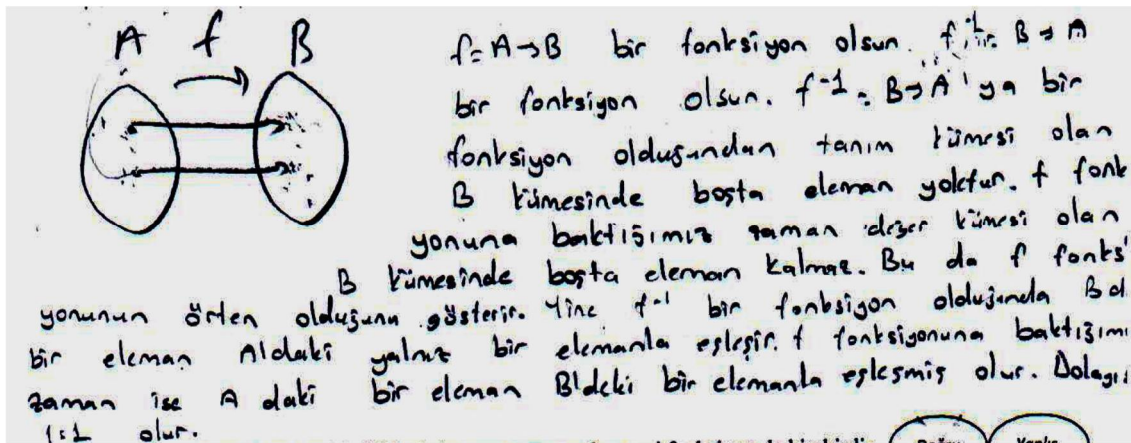 A f B
f: A → B bir fonksiyon olsun. B → A
bir fonksiyon olsun. f⁻¹: B → A'ya bir
fonksiyon olduğundan tanım kümesi olan
B kümesinde boşta eleman yoktur. f fonk
yonuna baktığımız zaman değer kümesi olan
B kümesinde boşta eleman kalmaz. Bu da f fonks
yonunun örten olduğunu gösterir. Yine f⁻¹ bir fonksiyon olduğunda B d
bir eleman A'daki yalnız bir elemanla eşleşir. f fonksiyonuna baktığımı
zaman ise A daki bir eleman B'deki bir elemanla eşleşmiş olur. Dolayı
1:1 olur.